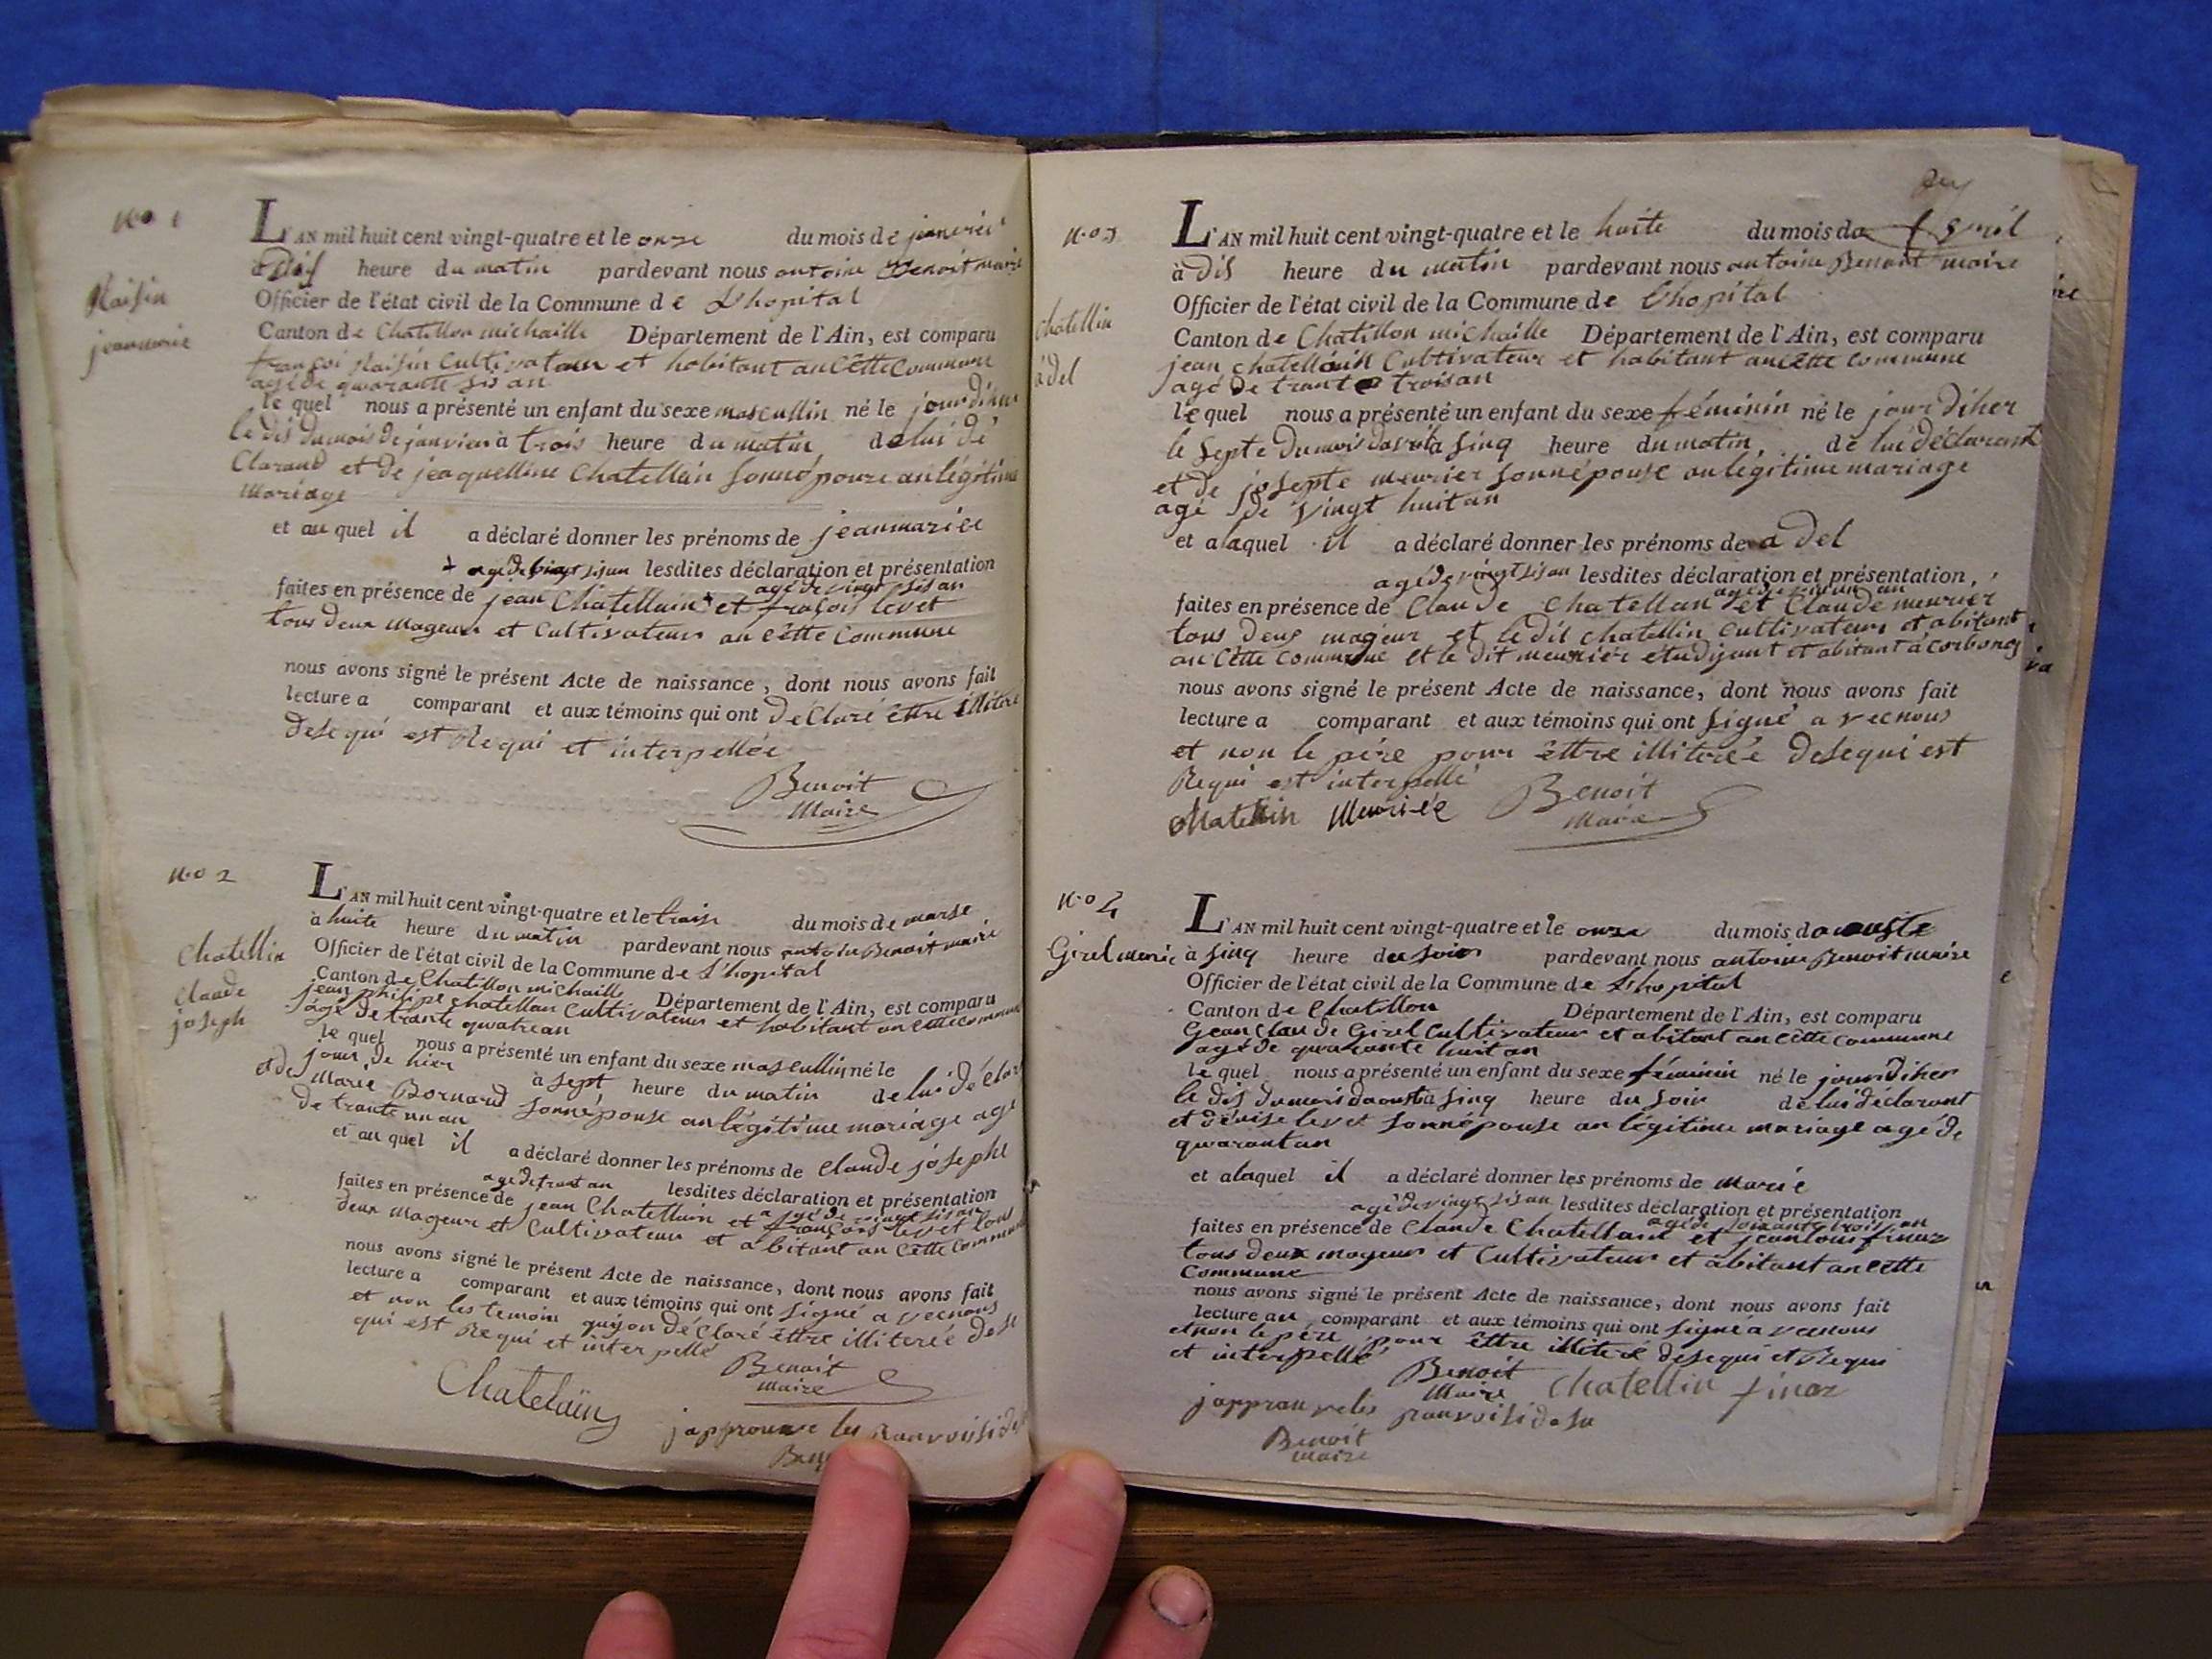 No 1
Raisin
jeanmarie
L'AN mil huit cent vingt-quatre et le onze du mois de
à heure du matin pardevant nous antoine Benoit maire
Officier de l'état civil de la Commune de L'hopital
Canton de Chatillon michaille Département de l'Ain, est comparu
françoi Raisin Cultivateur et habitant an Cette Commune
agé de quarante sis an
le quel nous a présenté un enfant du sexe mascullin né le jour
le dis du mois de janvier à trois heure du matin de lui dé
Clarand et de jeaquelline Chatellain sonnépouze an légitime
mariage
et au quel il a déclaré donner les prénoms de jeanmariee
agé de vingt sis an lesdites déclaration et présentation
agé de vingt sis an
faites en présence de jean Chatellain + et levet
tous deux mageur et Cultivateur an Cette Commune
nous avons signé le présent Acte de naissance, dont nous avons fait
lecture a comparant et aux témoins qui ont déClaré ettre
dese qui est Requi et interpellée
Benoit
Maire
No 2
Chatellin
Claude
joseph
L'AN mil huit cent vingt-quatre et le du mois de marse
à huite heure du matin pardevant nous antoine Benoit maire
Officier de l'état civil de la Commune de L'hopital
Canton de Chatillon michaille Département de l'Ain, est comparu
jean philipe chatellan Cultivateur et habitant an Cette commune
agé de trante quatrean
le quel nous a présenté un enfant du sexe mascullin né le
jour de hier à sept heure du matin de lui
et de Marie Bornard sonnépouse an légitime mariage age
de trante un an
et au quel il a déclaré donner les prénoms de Claude josephe
agé de trant an lesdites déclaration et présentation
agé de vingt sis an
faites en présence de jean Chatellain et françois levet tous
deux Mageur et Cultivateur et abitant an Cette Commune
nous avons signé le présent Acte de naissance, dont nous avons fait
lecture a comparant et aux témoins qui ont signé a vecnous
et non les temoin quijon déClaré ettre illiterée dese
qui est Requi et interpellé
Benoit
maire
Chatelain
japprouve les
No 3
Chatellin
adel
L'AN mil huit cent vingt-quatre et le huite du mois da
à dis heure du matin pardevant nous antoine Benoit maire
Officier de l'état civil de la Commune de L'hopital
Canton de Chatillon michaille Département de l'Ain, est comparu
jean chatellain Cultivateur et habitant an cette commune
agé de trante troisan
le quel nous a présenté un enfant du sexe féminin né le jour diher
le septe du mois davril a sinq heure du matin, de lui déclarant
et de josepte meurier sonnépouse an légitime mariage
agé de vingt huit an
et a laquel il a déclaré donner les prénoms de a del
agé de vingt sis an lesdites déclaration et présentation,
faites en présence de Claude Chatellan et Claude meurier
tous deus mageur et le dit chatellin Cultivateur et abitant
an Cette commune et le dit meurier étudijant et abitant à corbonog
nous avons signé le présent Acte de naissance, dont nous avons fait
lecture a comparant et aux témoins qui ont signé a vecnous
et non le père pour ettre illiterée desequi est
Requi est interpellé
Chatellin Meuriée Benoit
Maire
No 4
Girel marie
L'AN mil huit cent vingt-quatre et le onze du mois da ouste
à sinq heure du soir pardevant nous antoine Benoit maire
Officier de l'état civil de la Commune de L'hopital
Canton de Chatillon Département de l'Ain, est comparu
Gean Claude Girel Cultivateur et abitant an cette commune
agé de quarante huit an
le quel nous a présenté un enfant du sexe féminin né le jour diher
le dis du mois daoust a sinq heure du soir de lui declarant
et dénise levet sonnépouse an légitime mariage agé de
quarantan
et a laquel il a déclaré donner les prénoms de marie
agé de vingt sis an lesdites déclaration et présentation
agé de soixante trois an
faites en présence de Claude Chatellain et jean louis finaz
tous deux mageur et Cultivateur et abitant an cette
Commune
nous avons signé le présent Acte de naissance, dont nous avons fait
lecture au comparant et aux témoins qui ont signé a vecnous
et non le père pour ettre illiteré desequi et Requi
et interpellé
Benoit
Maire Chatellin finaz
japprouve les
Benoit
maire